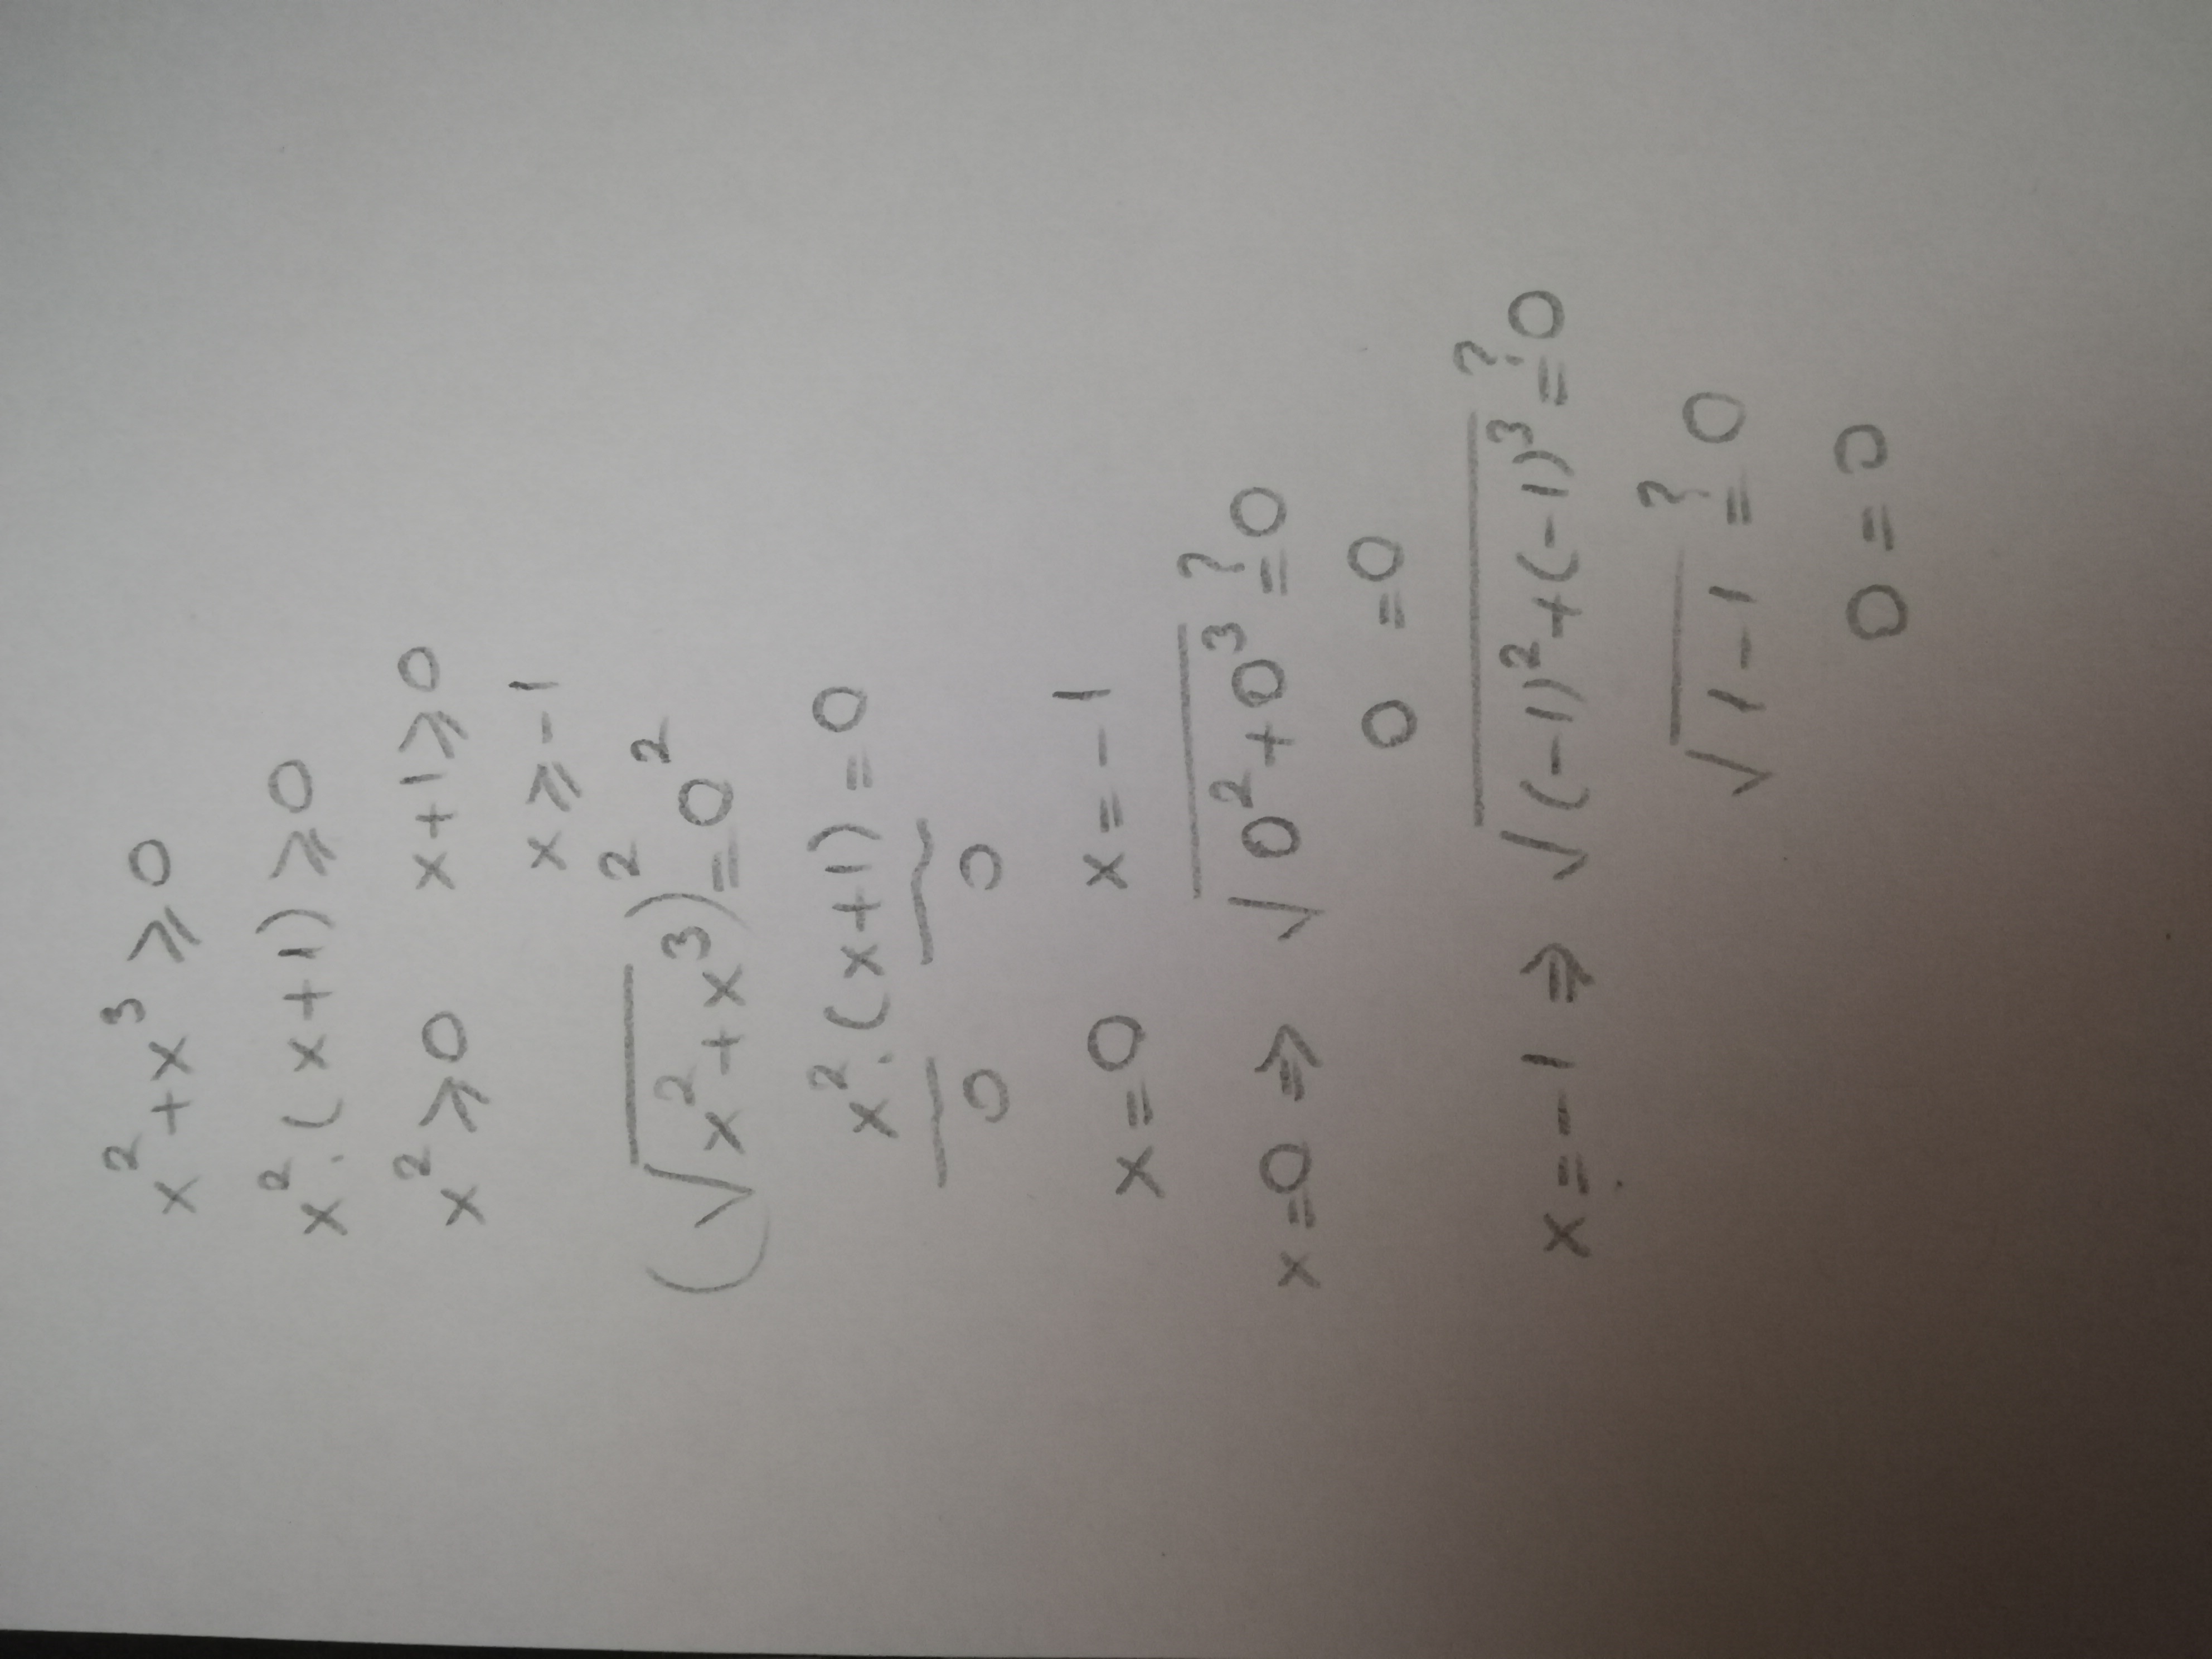 x² + x³ ⩾ 0
x² · (x+1) ⩾ 0
x² ⩾ 0 x+1 ⩾ 0
x ⩾ -1
(√(x² + x³))² = 0²
x² · (x+1) = 0
0 0
x = 0 x = -1
x = 0 ⇒ √(0² + 0³) ≟ 0
0 = 0
x = -1 ⇒ √((-1)² + (-1)³) ≟ 0
√(1-1) ≟ 0
0 = 0